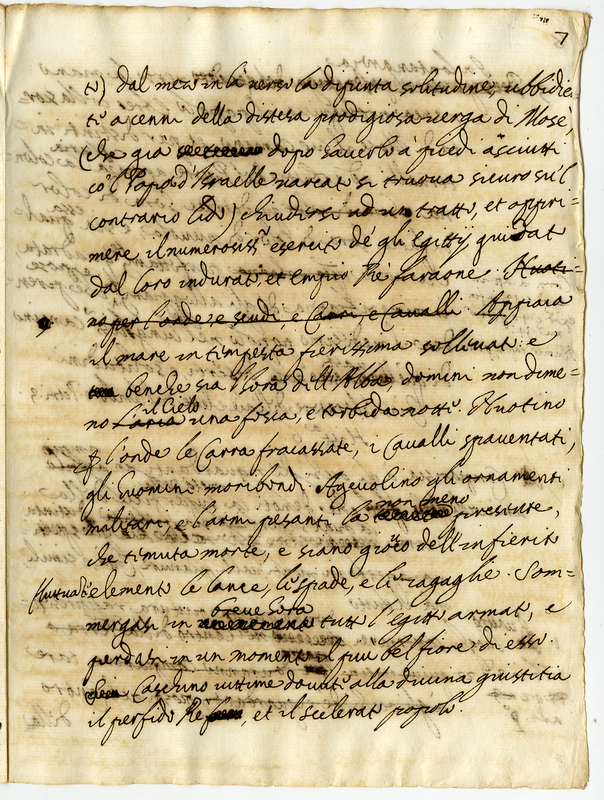 7
to) dal mezo in la verso la dipinta solitudine, ubbidie=
te a cenni della distesa prodigiosa verga di Mosè,
(che già dopo haverlo à piedi asciutti
co'l Popolo d'Israelle varcato si truova sicuro su'l
contrario lido) chiudersi ad un tratto, et oppri=
mere il numerosiss.º esercito de gli Egittij guidato
dal loro indurato et empio Rè faraone. Nuoti=
no per l'onde, e scudi, e Carri, e Cavalli. Appaia
il mare in tempesta fierissima sollevato: e
benche sia l'hora dell'Alba, domini non dime=
il Cielo
no L'aria una fosca, e torbida notte. Nuotino
p l'onde le Carra fracassate, i Cavalli spaventati,
gli huomini moribondi. Agevolino gli ornamenti
non meno
militari, e l'armi pesanti la presente,
che temuta morte, e siano gioco dell'infierito
fluttuate elemento le lance, le spade, e le zagaglie. Som=
breve hora
mergasi in tutto l'egitto armato, e
perdasi in un momento il piu bel fiore di esso.
Caschino vittime dovute alla divina giustitia
il perfido Re, et il scelerato popolo.